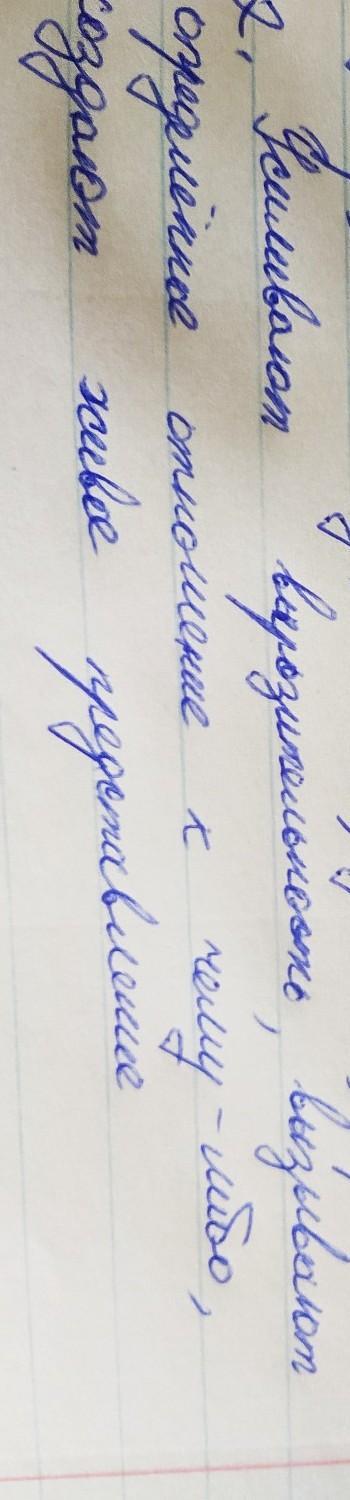 2. Усиливают выразительность, вызывают
определённое отношение к чему-либо,
создают живое представление